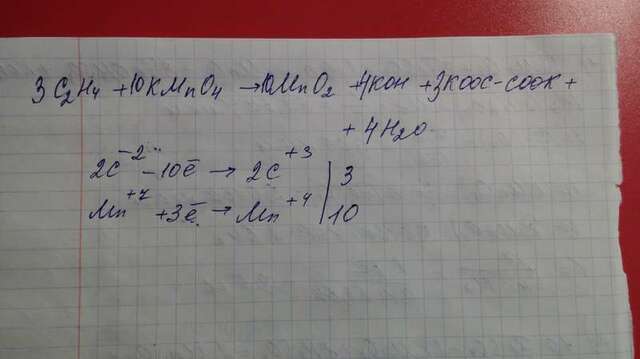 3 C₂H₄ + 10KMnO₄ → 10MnO₂ + 4KOH + 3KOOC-COOK +
+ 4H₂O
2C⁻² - 10ē → 2C⁺³ | 3
Mn⁺⁷ + 3ē → Mn⁺⁴ | 10